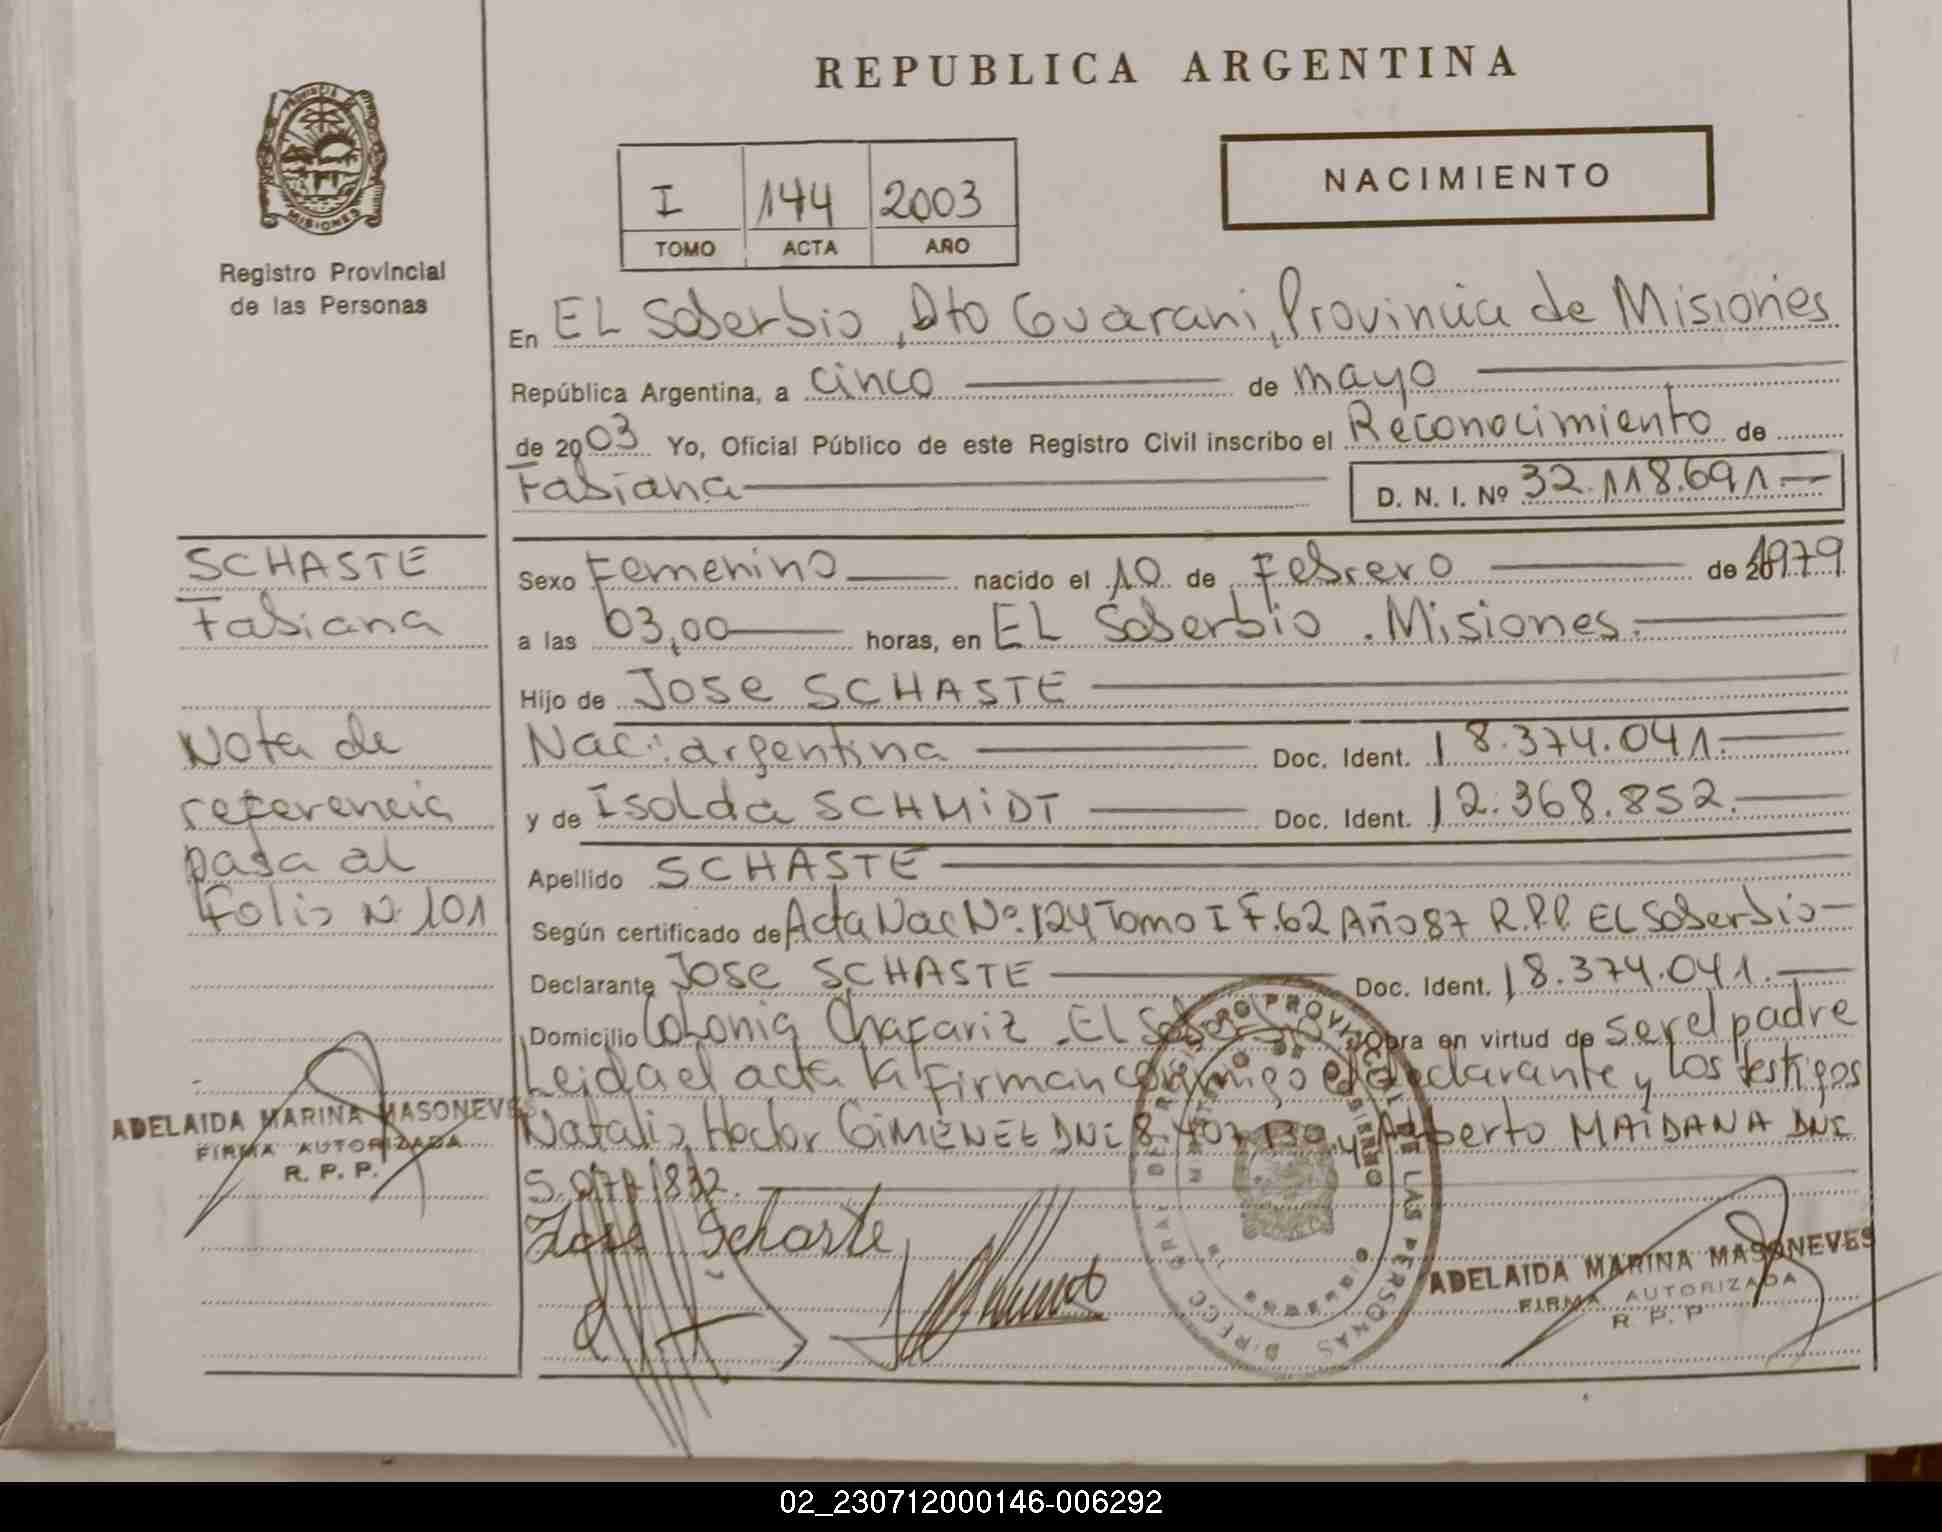 REPUBLICA ARGENTINA
PROVINCIA DE
MISIONES
Registro Provincial
de las Personas
I 144 2003
TOMO ACTA AÑO
NACIMIENTO
En EL Soberbio, Dto Guarani, Provincia de Misiones
República Argentina, a cinco de mayo
de 2003 Yo, Oficial Público de este Registro Civil inscribo el Reconocimiento de
Fabiana D. N. I. Nº 32.118.691.-
SCHASTE
Fabiana
Nota de
referencia
pasa al
Folio N. 101
Sexo Femenino nacido el 10 de Febrero de 1979
a las 03,00 horas, en EL Soberbio. Misiones.
Hijo de Jose SCHASTE
Nac: argentina Doc. Ident. 18.374.041.
y de Isolda SCHMiDT Doc. Ident. 12.368.852.
Apellido SCHASTE
Según certificado de Acta Nac Nº. 124 Tomo I F.62 Año 87 R.P.P. EL Soberbio-
Declarante Jose SCHASTE Doc. Ident. 18.374.041.
Domicilio Colonia Chafariz. El Soberbio Obra en virtud de ser el padre
Leida el acta la firman conmigo el declarante y los testigos
Natalio Hector GiMENEZ DNI 8.407.130 y Alberto MAiDANA DNI
Jose Schaste
ADELAIDA MARINA MASONEVES
FIRMA AUTORIZADA
R. P. P.
DIRECC. GRAL. DEL REGISTRO PROVINCIAL DE LAS PERSONAS
ADELAIDA MARINA MASONEVES
FIRMA AUTORIZADA
R. P. P
02_230712000146-006292